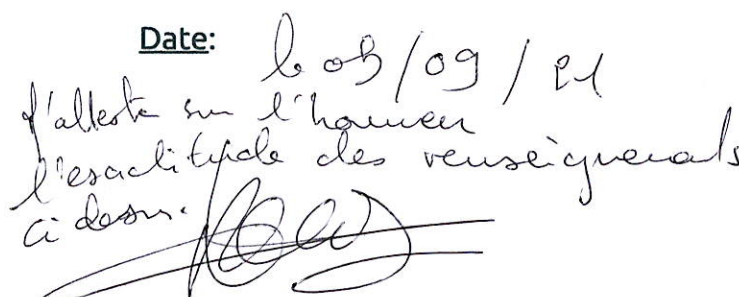 Date: le 03/09/21
J'atteste sur l'honneur
l'exactitude des renseignements
ci dessus.